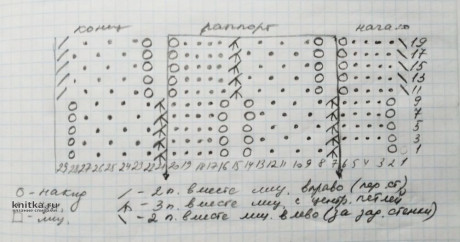 конец раппорт начало
19
17
15
13
11
9
7
5
3
1
29 28 27 26 25 24 23 22 21 20 19 18 17 16 15 14 13 12 11 10 9 8 7 6 5 4 3 2 1
О - накид / - 2 п. вместе лиц. вправо (пер. ст)
- 3 п. вместе лиц. с центр. петлей
□ - лиц. \ - 2 п. вместе лиц. влево (за зад. стенки)
knitka.ru